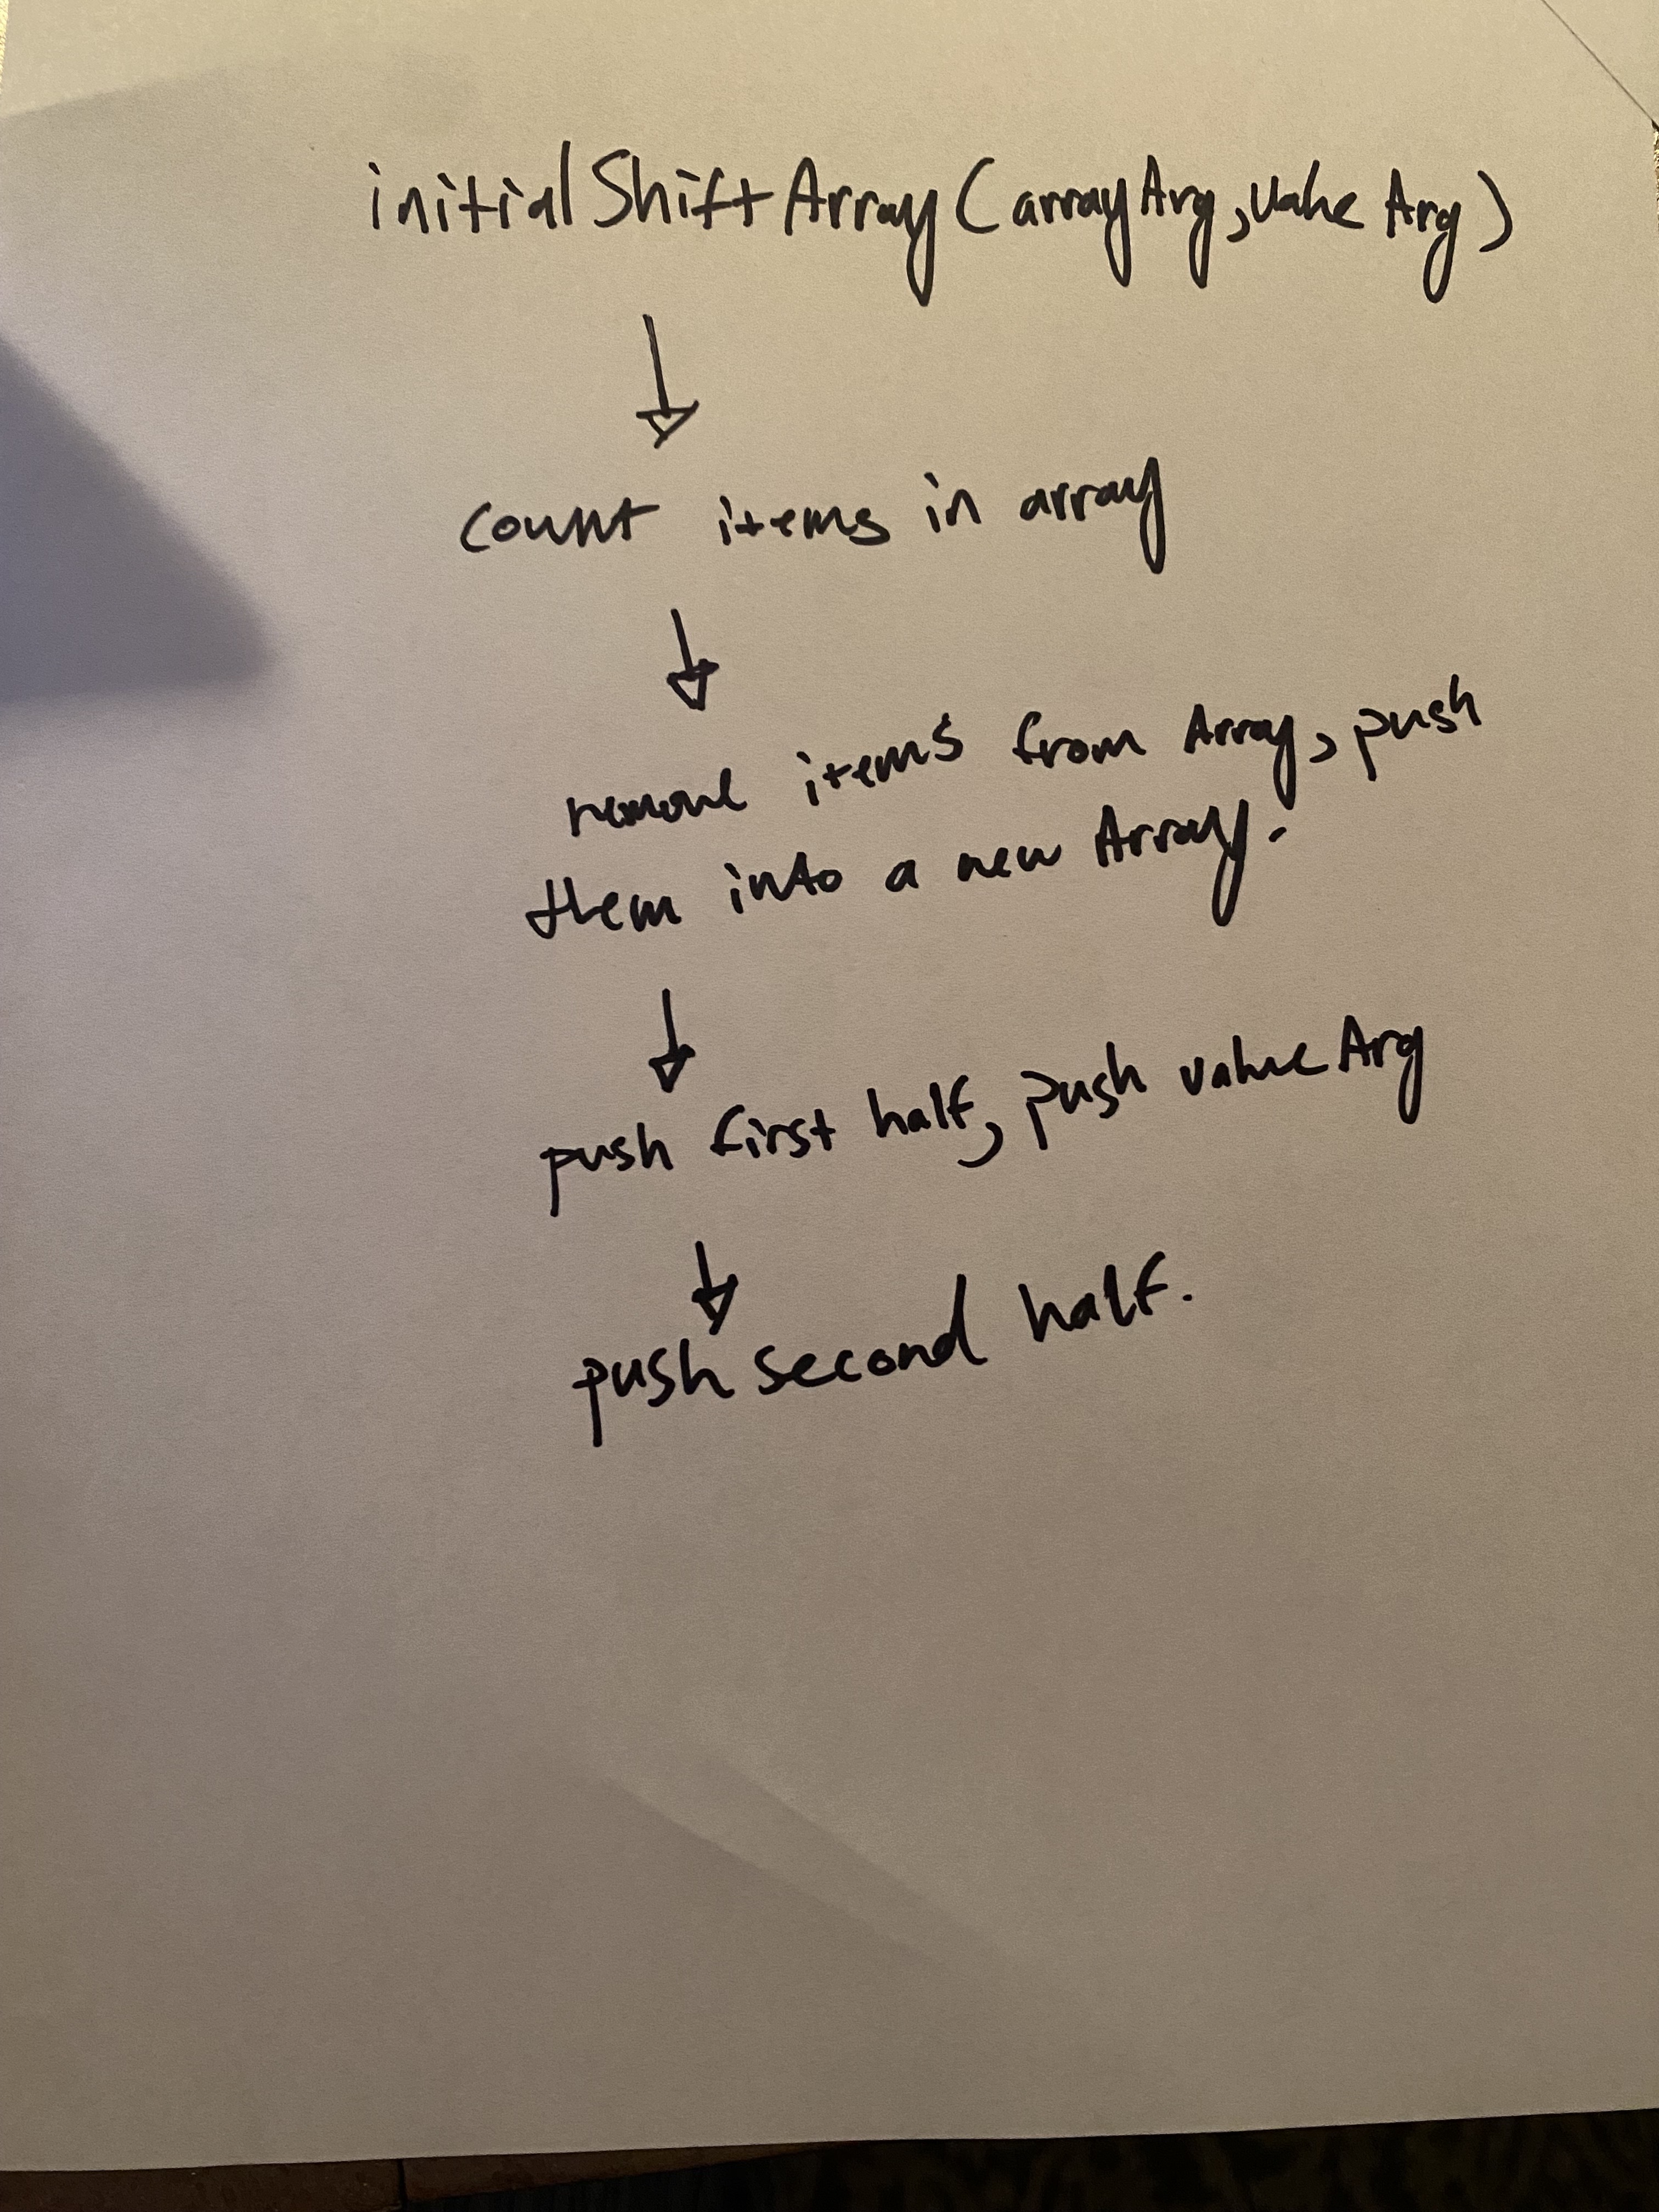 initialShiftArray(arrayArg, valueArg)
count items in array
remove items from Array, push
them into a new Array.
push first half, push valueArg
push second half.